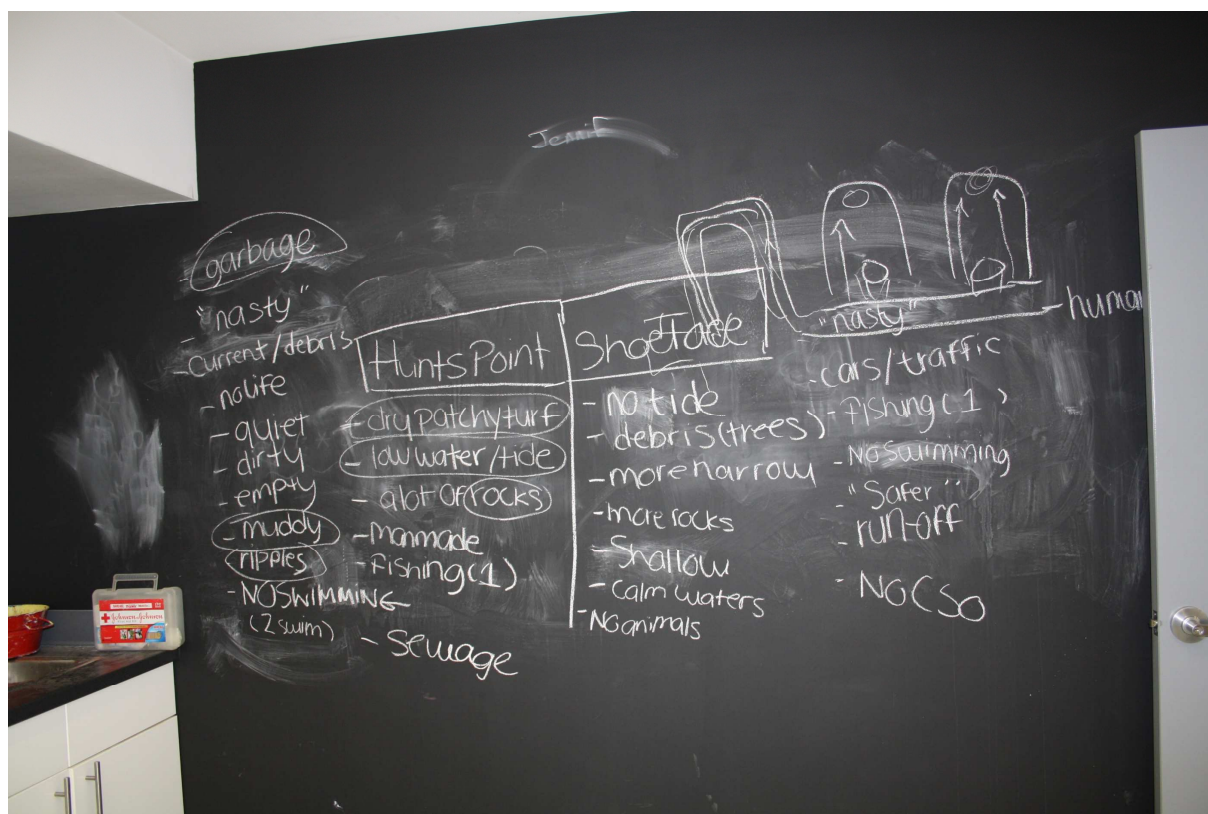 Jenni
- garbage
- "nasty"
- Current/debris
- no life
- quiet
- dirty
- empty
- muddy
ripples
- NO SWIMMING
(2 swim)
Hunts Point
- dry patchy turf
- low water/tide
- a lot of rocks
- manmade
- fishing (1)
- sewage
ShoeTace
- no tide
- debris (trees)
- more narrow
- more rocks
- Shallow
- calm waters
- No animals
- "nasty"
- human
- cars/traffic
- fishing (1)
- No swimming
"Safer"
- run-off
- NO CSO
Johnson & Johnson